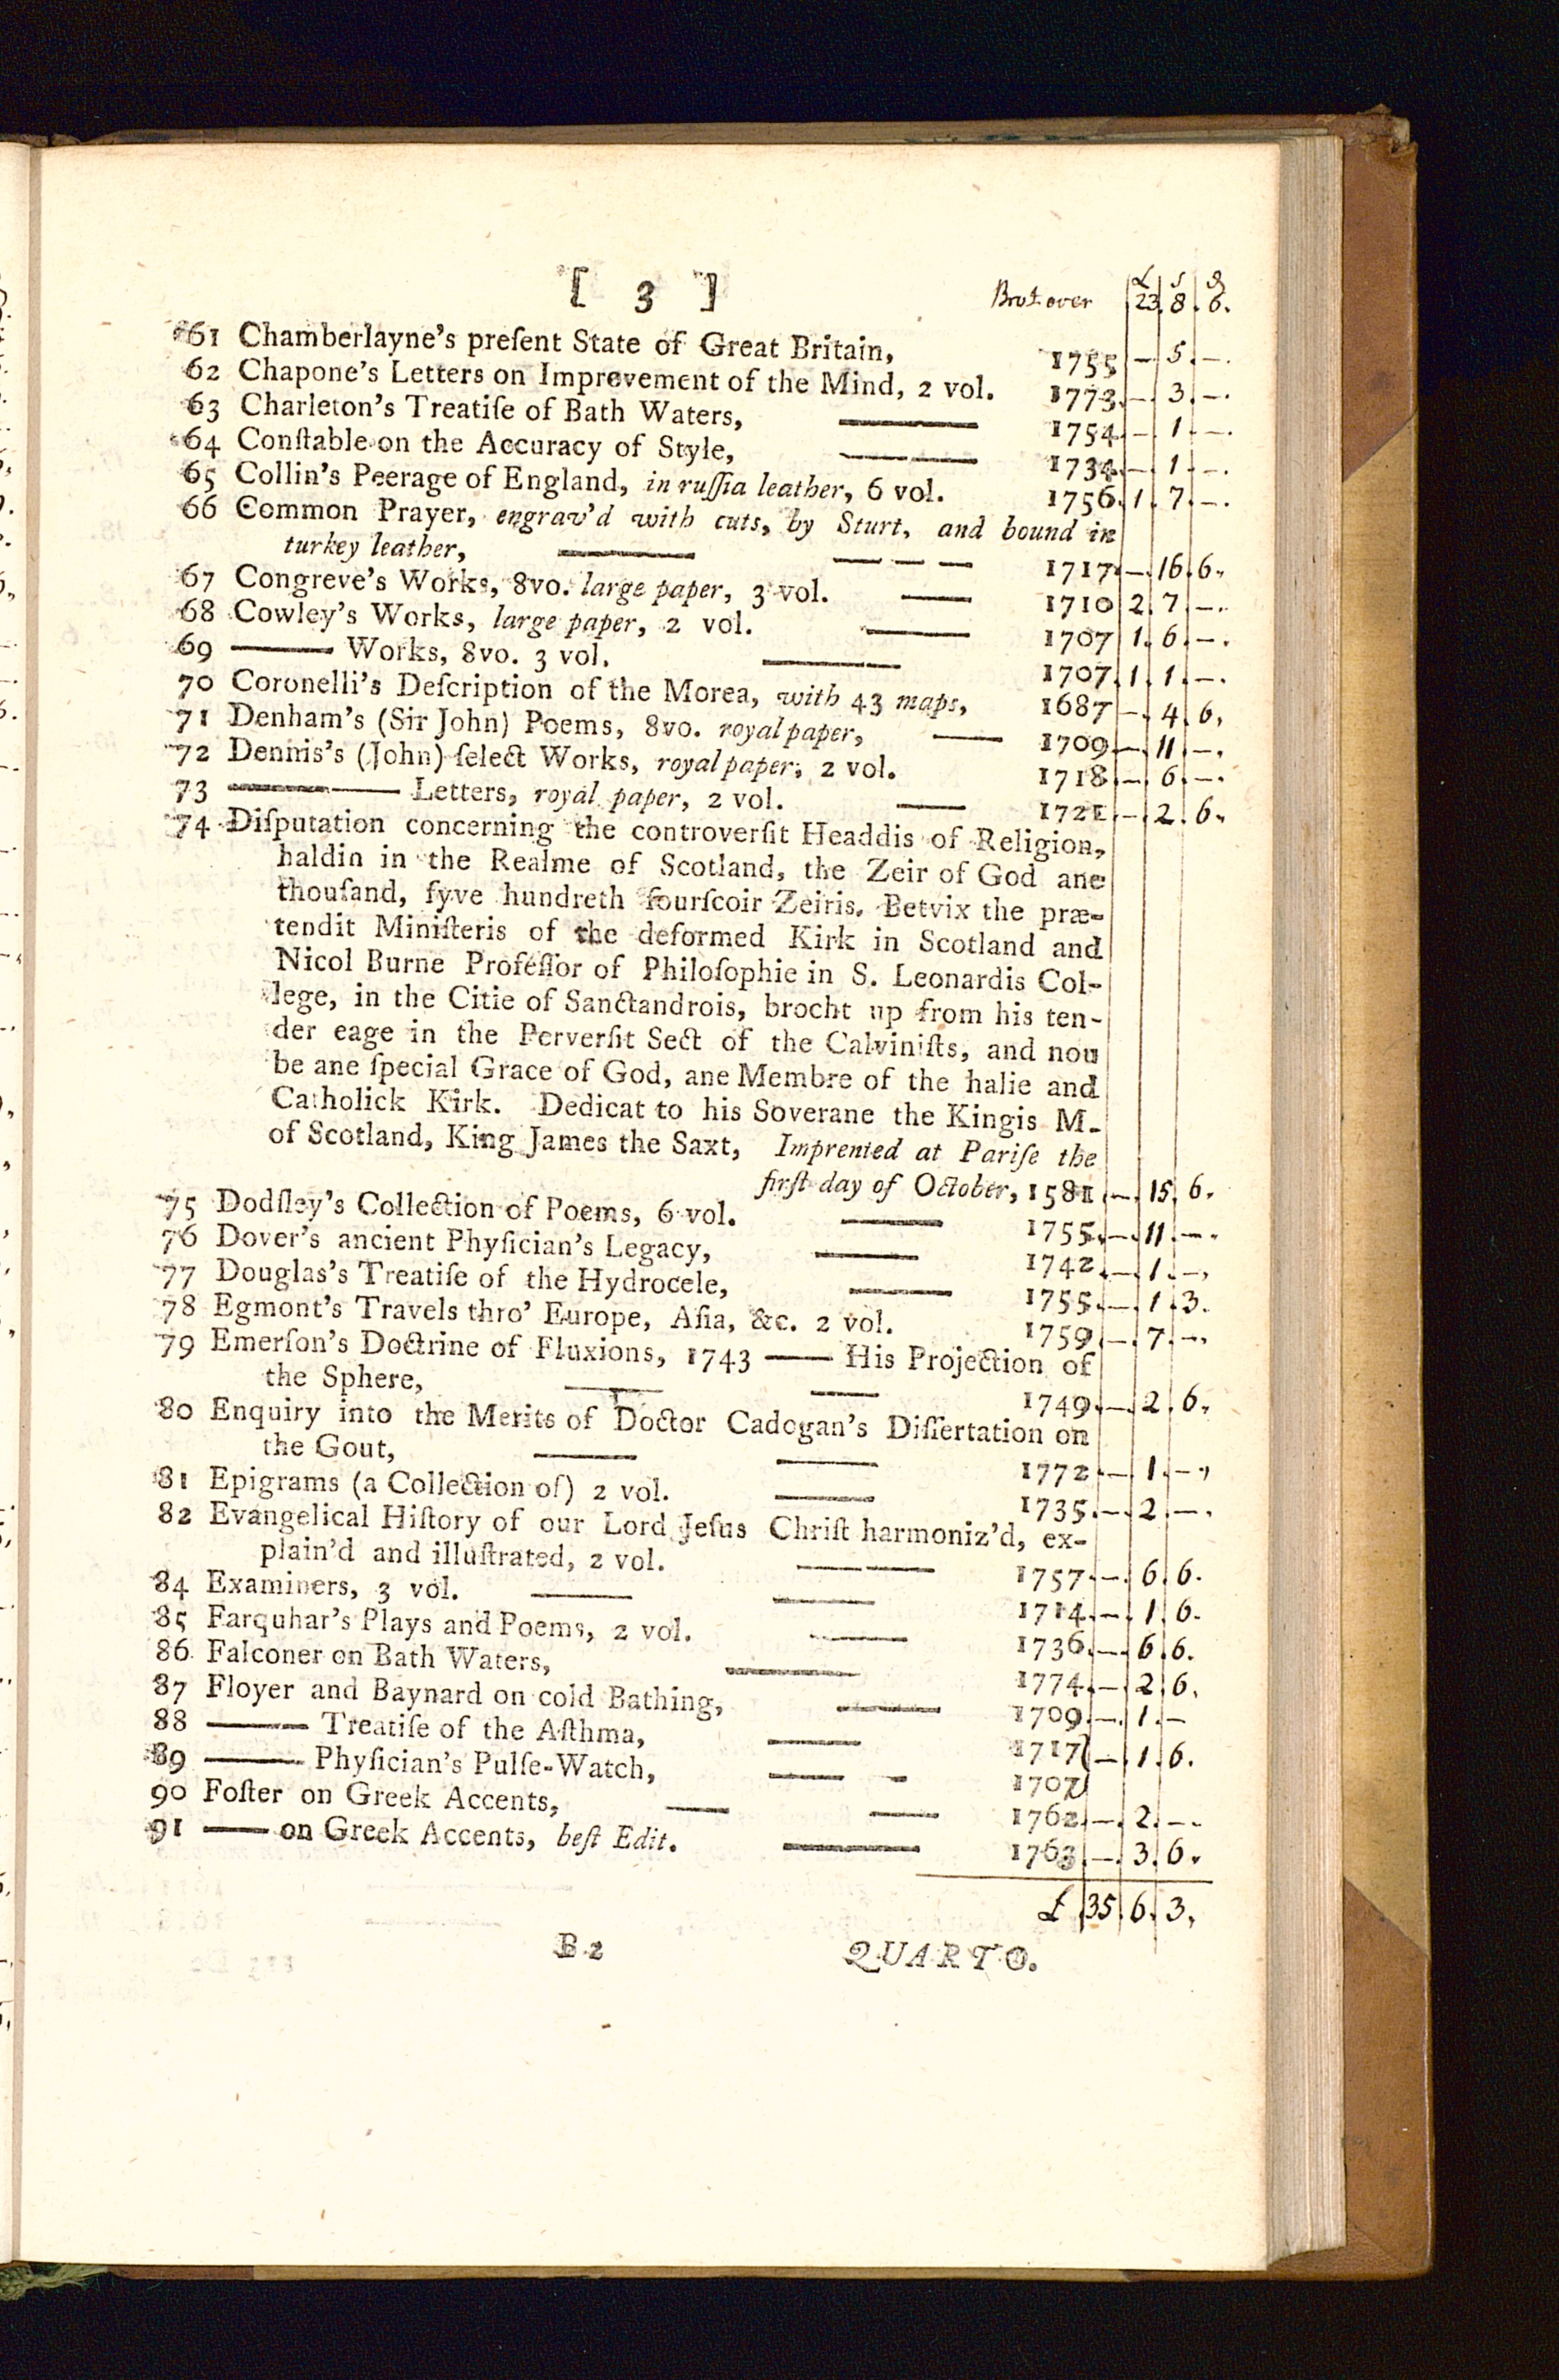 [ 3 ] Brot over £ s d
23. 8. 6.
61 Chamberlayne's preſent State of Great Britain, 1755 — 5. —.
62 Chapone's Letters on Imprevement of the Mind, 2 vol. 1773. —. 3. —.
63 Charleton's Treatiſe of Bath Waters, —— 1754. —. 1. —.
64 Conſtable on the Accuracy of Style, —— 1734. —. 1. —.
65 Collin's Peerage of England, in ruſſia leather, 6 vol. 1756. 1. 7. —.
66 Common Prayer, engrav'd with cuts, by Sturt, and bound in
turkey leather, —— —— 1717. —. 16. 6.
67 Congreve's Works, 8vo. large paper, 3 vol. —— 1710 2. 7. —.
68 Cowley's Works, large paper, 2 vol. —— 1707 1. 6. —.
69 —— Works, 8vo. 3 vol. —— 1707. 1. 1. —.
70 Coronelli's Deſcription of the Morea, with 43 maps, 1687 —. 4. 6.
71 Denham's (Sir John) Poems, 8vo. royal paper, —— 1709. —. 11. —.
72 Dennis's (John) ſelect Works, royal paper, 2 vol. 1718. —. 6. —.
73 —— Letters, royal paper, 2 vol. —— 1721. —. 2. 6.
74 Diſputation concerning the controverſit Headdis of Religion,
haldin in the Realme of Scotland, the Zeir of God ane
thouſand, fyve hundreth fourſcoir Zeiris. Betvix the præ-
tendit Miniſteris of the deformed Kirk in Scotland and
Nicol Burne Profeſſor of Philoſophie in S. Leonardis Col-
lege, in the Citie of Sanctandrois, brocht up from his ten-
der eage in the Perverſit Sect of the Calviniſts, and nou
be ane ſpecial Grace of God, ane Membre of the halie and
Catholick Kirk. Dedicat to his Soverane the Kingis M.
of Scotland, King James the Saxt, Imprented at Pariſe the
firſt day of October, 1581. —. 15. 6.
75 Dodſley's Collection of Poems, 6 vol. —— 1755. —. 11. —.
76 Dover's ancient Phyſician's Legacy, —— 1742. —. 1. —.
77 Douglas's Treatiſe of the Hydrocele, —— 1755. —. 1. 3.
78 Egmont's Travels thro' Europe, Aſia, &c. 2 vol. 1759. —. 7. —.
79 Emerſon's Doctrine of Fluxions, 1743 —— His Projection of
the Sphere, —— —— 1749. —. 2. 6.
80 Enquiry into the Merits of Doctor Cadogan's Diſſertation on
the Gout, —— —— 1772. —. 1. —.
81 Epigrams (a Collection of) 2 vol. —— 1735. —. 2. —.
82 Evangelical Hiſtory of our Lord Jeſus Chriſt harmoniz'd, ex-
plain'd and illuſtrated, 2 vol. —— 1757. —. 6. 6.
84 Examiners, 3 vol. —— —— 1714. —. 1. 6.
85 Farquhar's Plays and Poems, 2 vol. —— 1736. —. 6. 6.
86 Falconer on Bath Waters, —— 1774. —. 2. 6.
87 Floyer and Baynard on cold Bathing, —— 1709. —. 1. —
88 —— Treatiſe of the Aſthma, —— 1717 —. 1. 6.
89 —— Phyſician's Pulſe-Watch, —— — 1707
90 Foſter on Greek Accents, —— —— 1762. —. 2. —.
91 —— on Greek Accents, beſt Edit. —— 1763. —. 3. 6.
£ 35. 6. 3.
B 2 QUARTO.